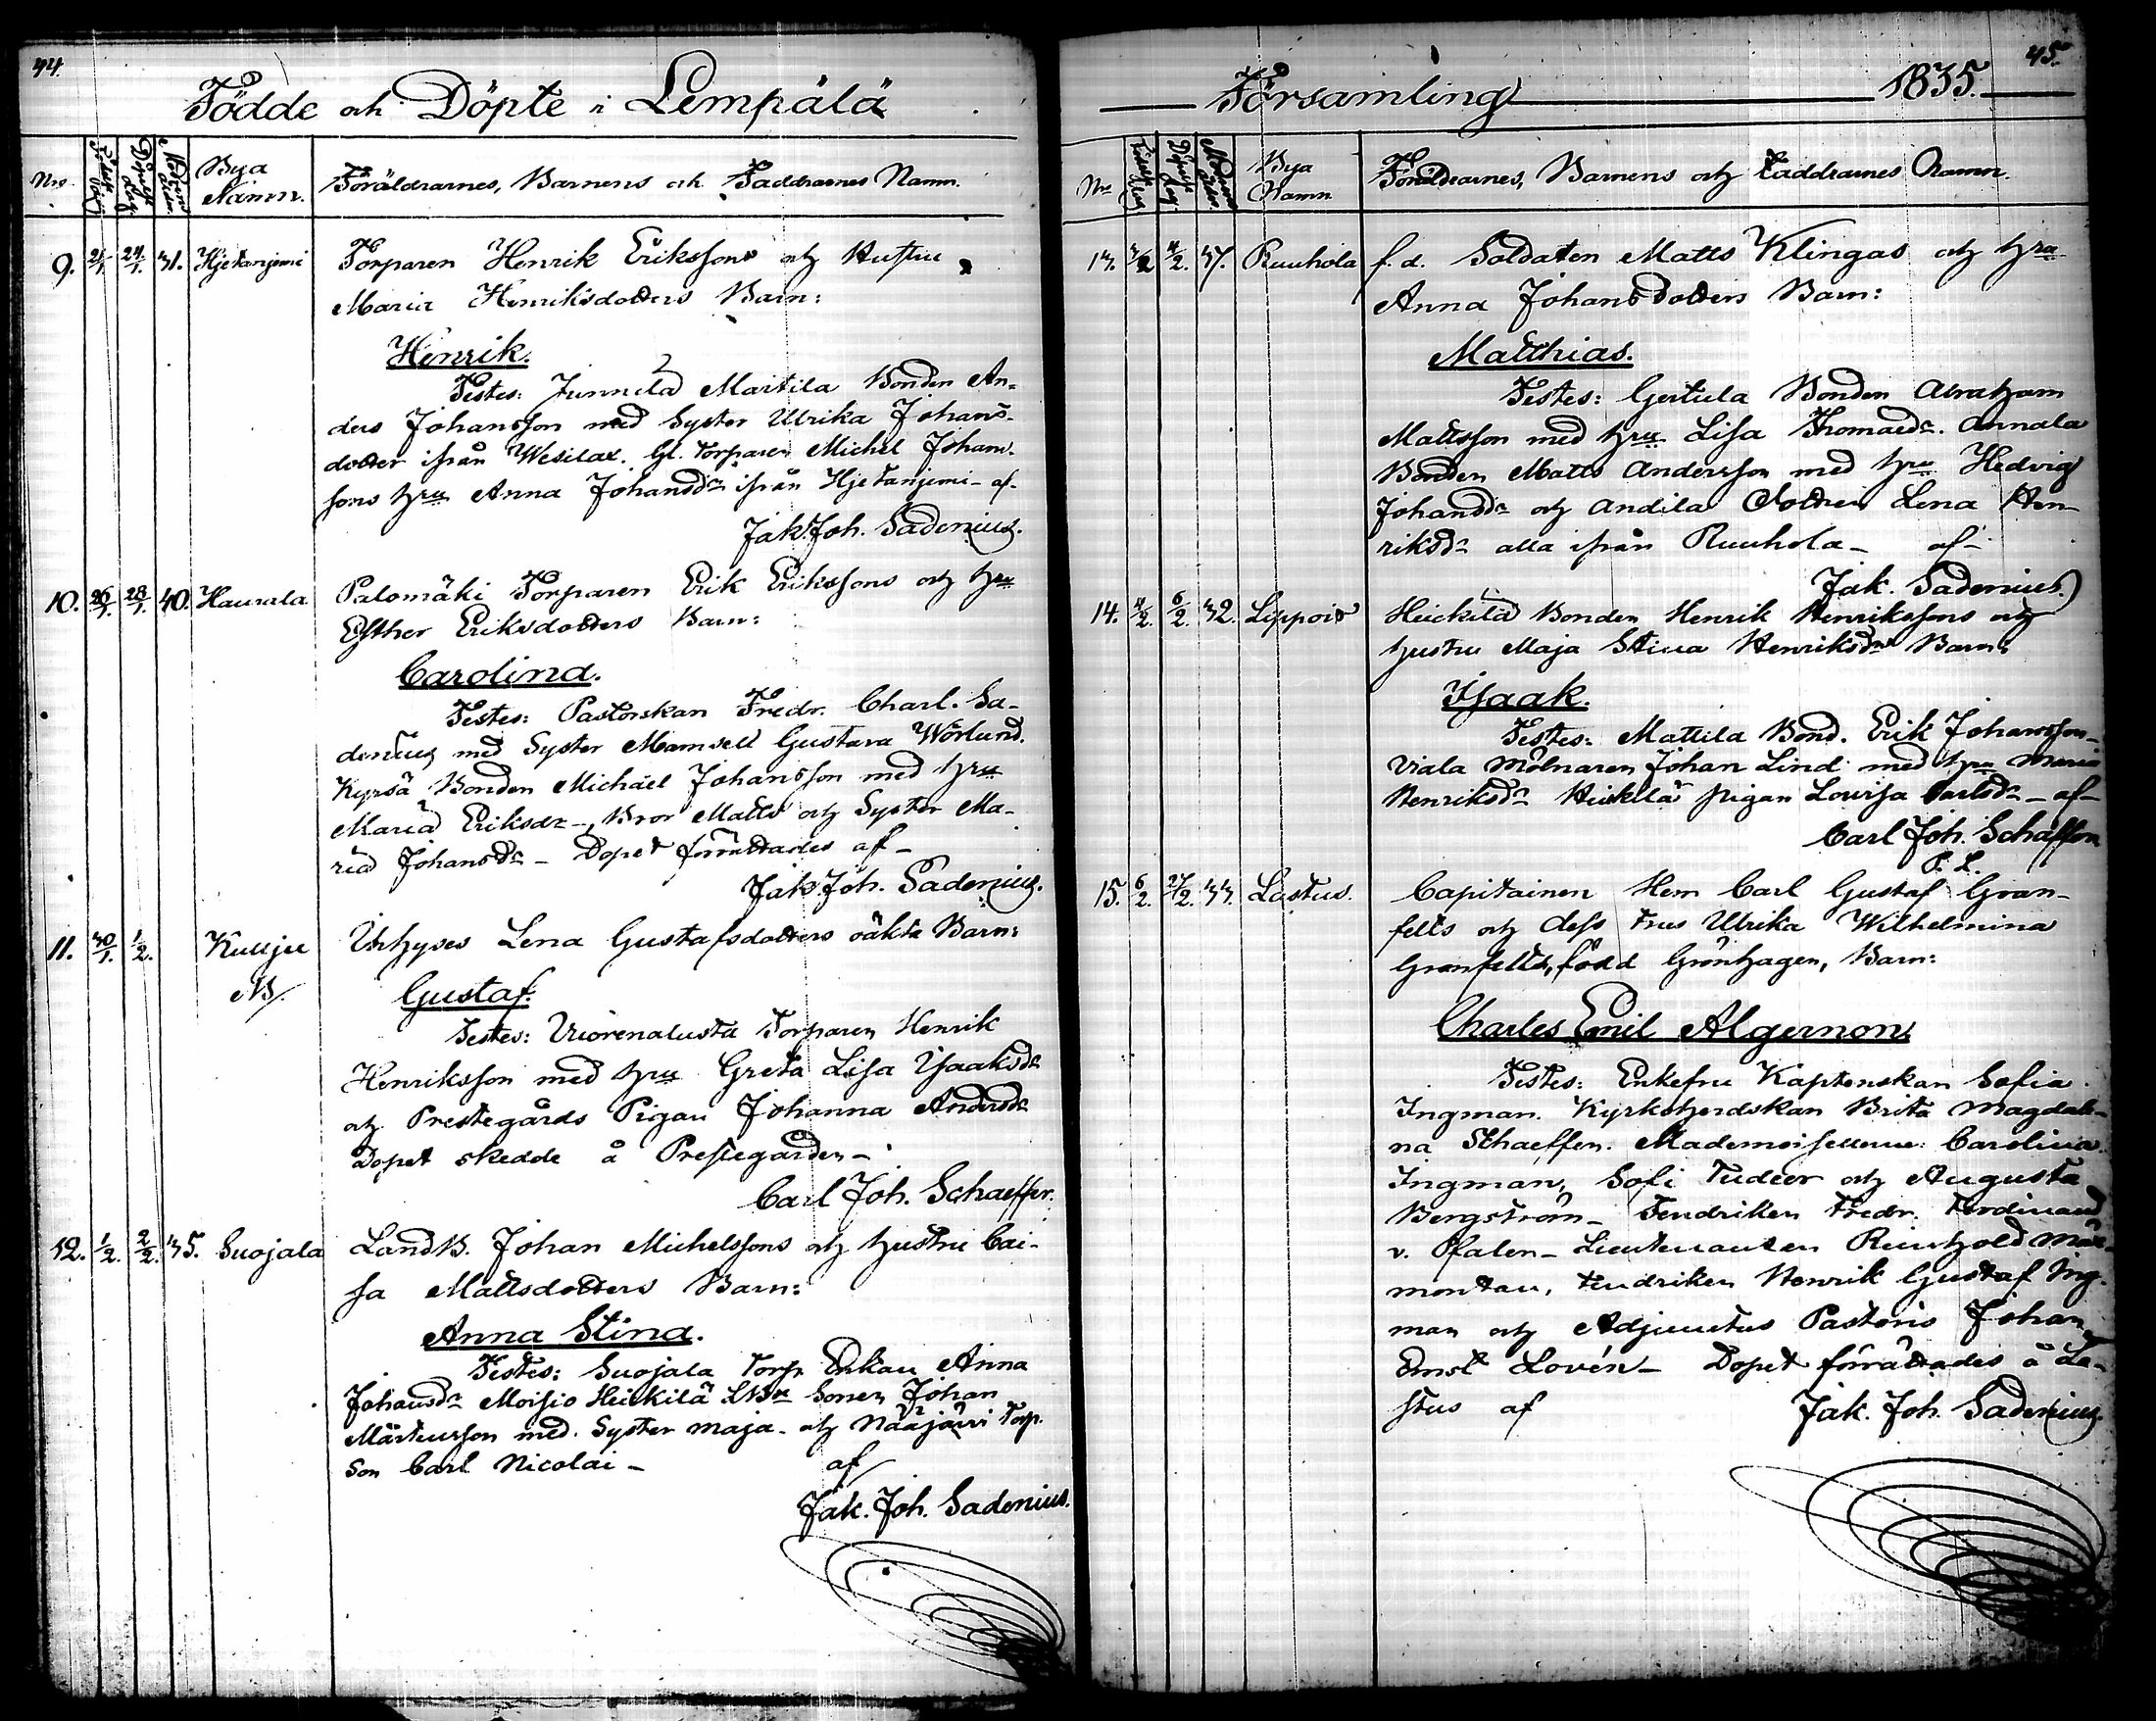 44.
Födde och Döpte i Lempälä
Nro. Födelse Dag Döpelse Dag Modrens ålder. Bya Namn. Föräldrarnes, Barnens och Faddrarnes Namn.
9. 21/1. 24/1. 31. Hjetanjemi Torparen Henrik Erikssons och Hustru
Maria Henriksdotters Barn:
Henrik.
Testes: Junnila Martila Bonden An-
ders Johansson med Syster Ulrika Johans-
dotter ifrån Wesilax. Gl. Torparen Michel Johans-
sons hru Anna Johansdr ifrån Hjetanjemi - af-
Jak. Joh. Sadenius.
10. 26/1. 28/1. 40. Haurala Palomäki Torparen Erik Erikssons och hru
Esther Eriksdotters Barn:
Carolina.
Testes: Pastorskan Fredr. Charl. Sa-
denius med Syster Mamsell Gustava Wörlund.
Kyrsä Bonden Michael Johansson med hru
Maria Eriksdr -, Bror Matts och Syster Ma-
ria Johansdr - Dopet förrättades af -
Jak. Joh. Sadenius.
11. 30/1. 1/2. Kulju Inhyses Lena Gustafsdotters oäkta Barn:
NB. Gustaf.
Testes: Vuorenalusta Torparen Henrik
Henriksson med hru Greta Lisa Isaaksdr
och Prestegårds Pigan Johanna Andersdr
Dopet skedde å Prestegården -
Carl Joh. Schaeffer.
12. 1/2. 2/2. 35. Suojala LandB. Johan Michelssons och hustru Cai-
sa Mattsdotters Barn:
Anna Stina.
Testes: Suojala Torp. Enkan Anna
Johansdr Moisio Heickilä LBdn Sonen Johan
Mårtensson med Syster Maja - och Naarjärvi Torp.
Son Carl Nicolai - af
Jak. Joh. Sadenius.
45.
Församling 1835.
Nro Födelse Dag Döpelse Dag. Modrens ålder. Bya Namn Föräldrarnes, Barnens och Faddrarnes Namn.
13. 3/2 4/2. 37. Ruuhola f.d. Soldaten Matts Klingas och hru
Anna Johansdotters Barn:
Matthias.
Testes: Gertula Bonden Abraham
Mattsson med hru Lisa Thomaedr. Annala
Bonden Matts Andersson med hru Hedvig
Johansdr och Andila Dottren Lena Hen-
riksdr alla ifrån Ruuhola - af -
Jak. Sadenius.
14. 4/2. 6/2. 32. Lippois Heickilä Bonden Henrik Henrikssons och
hustru Maja Stina Henriksdrs Barn:
Isaak.
Testes: Mattila Bond. Erik Johansson -
Viala Mölnaren Johan Lind med hru Maria
Henriksdr Heickilä pigan Lovisa Carlsdr - af -
Carl Joh. Schaeffer
P. L.
15. 6/2. 27/2. 33. Lastus. Capitainen Herr Carl Gustaf Gran-
felts och dess Frus Ulrika Wilhelmina
Granfelts, född Grönhagen, Barn:
Charles Emil Algernon.
Testes: Enkefru Kaptenskan Sofia
Ingman. Kyrkoherdskan Brita Magdale-
na Schaeffer. Mademoisellerne: Carolina
Ingman, Sofi Tudeer och Augusta
Bergström - Fendriken Fredr. Ferdinand
v. Pfaler - Lieutenanten Reinhold Mör-
montau, Fendriken Henrik Gustaf Ing-
man och Adjunctus Pastoris Johan
Ernst Lovén - Dopet förrättades å La-
stus af Jak. Joh. Sadenius.